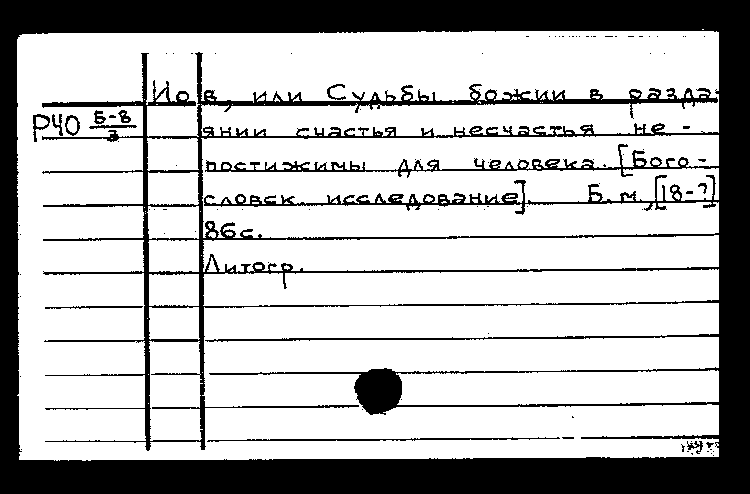 Иов, или Судьбы божии в разда-
Р40 Б-8/3 янии счастья и несчастья не-
постижимы для человека. [Бого-
словск. исследование]. Б.м., [18-?]
86с.
Литогр.